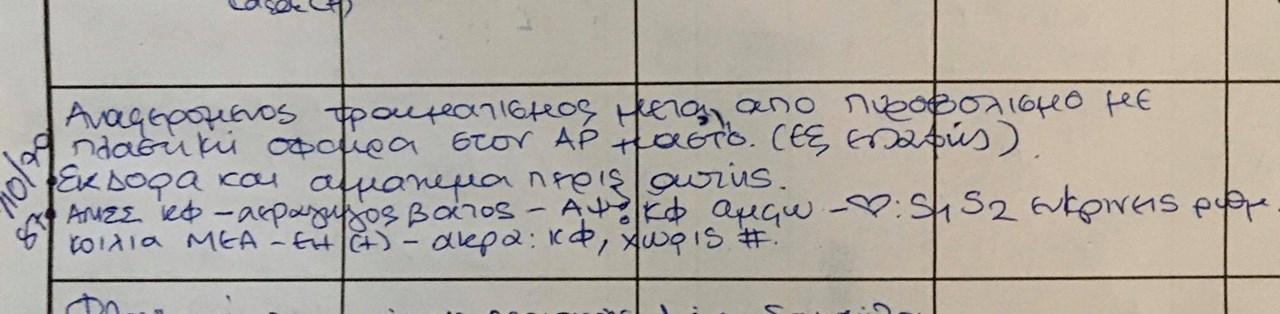 Αναφερομενος τραυματισμος μετα από πυροβολισμο με
πλαστικη σφαιρα στον ΑΡ μαστο. (εξ επαφής).
Εκδορα και αιματωμα πέριξ αυτής.
ΑΜΣΣ κφ - αεραγωγος βατος - ΑΨ: κφ αμφω - ♡: S1 S2 ευκρινεις ρυθμ.
κοιλια ΜΕΑ - ΕΗ (+) - ακρα: κφ, χωρις #.